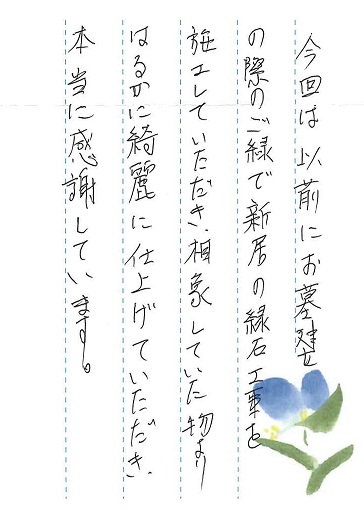 今回は以前にお墓建立
の際のご縁で新居の縁石工事を
施工していただき、想象していた物より
はるかに綺麗に仕上げていただき、
本当に感謝しています。